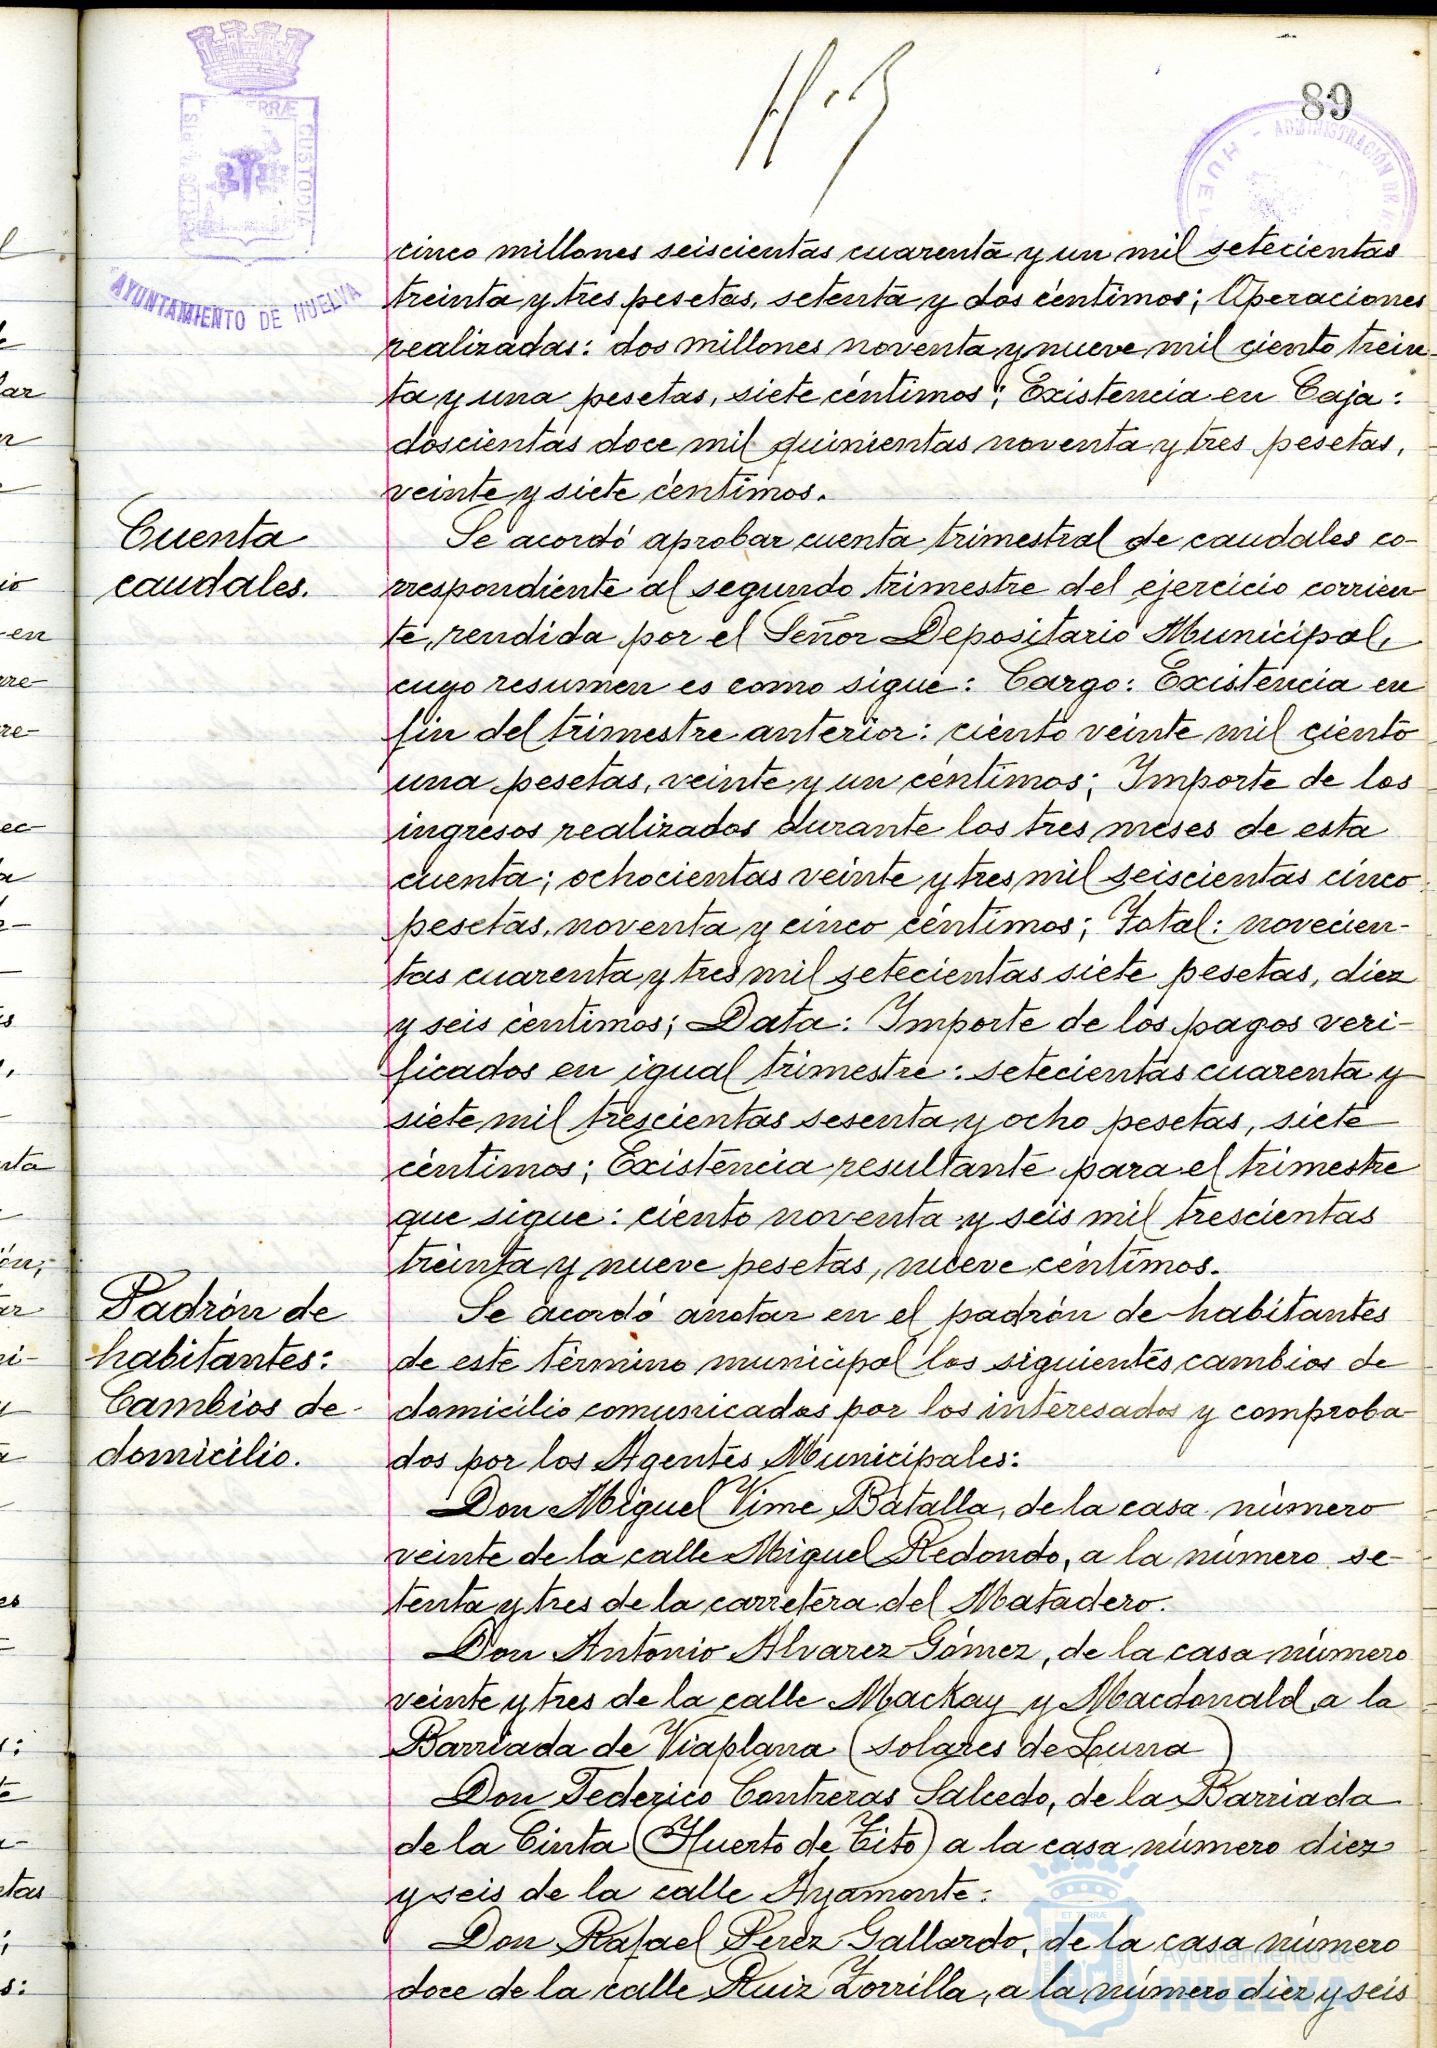 89
AYUNTAMIENTO DE HUELVA
ADMINISTRACIÓN DE
cinco millones seiscientas cuarenta y un mil setecientas
treinta y tres pesetas, setenta y dos céntimos; Operaciones
realizadas: dos millones noventa y nueve mil ciento trein-
ta y una pesetas, siete céntimos; Existencia en Caja:
doscientas doce mil quinientas noventa y tres pesetas,
veinte y siete céntimos.
Cuenta
caudales.
Se acordó aprobar cuenta trimestral de caudales co-
rrespondiente al segundo trimestre del ejercicio corrien
te, rendida por el Señor Depositario Municipal,
cuyo resumen es como sigue: Cargo: Existencia en
fin del trimestre anterior: ciento veinte mil ciento
una pesetas, veinte y un céntimos; Importe de los
ingresos realizados durante los tres meses de esta
cuenta; ochocientas veinte y tres mil seiscientas cinco
pesetas, noventa y cinco céntimos; Total: novecien-
tas cuarenta y tres mil setecientas siete pesetas, diez
y seis céntimos; Data: Importe de los pagos veri-
ficados en igual trimestre: setecientas cuarenta y
siete mil trescientas sesenta y ocho pesetas, siete
céntimos; Existencia resultante para el trimestre
que sigue: ciento noventa y seis mil trescientas
treinta y nueve pesetas, nueve céntimos.
Padrón de
habitantes:
Cambios de
domicilio.
Se acordó anotar en el padrón de habitantes
de este término municipal los siguientes cambios de
domicilio comunicados por los interesados y comproba-
dos por los Agentes Municipales:
Don Miguel Vime Batalla, de la casa número
veinte de la calle Miguel Redondo, a la número se-
tenta y tres de la carretera del Matadero.
Don Antonio Alvarez Gómez, de la casa número
veinte y tres de la calle Mackay y Macdonald, a la
Barriada de Viaplana (solares de Luna)
Don Federico Contreras Salcedo, de la Barriada
de la Cinta (Huerto de Tito) a la casa número diez
y seis de la calle Ayamonte:
Don Rafael Perez Gallardo, de la casa número
doce de la calle Ruiz Zorrilla, a la número diez y seis
Ayuntamiento de
HUELVA